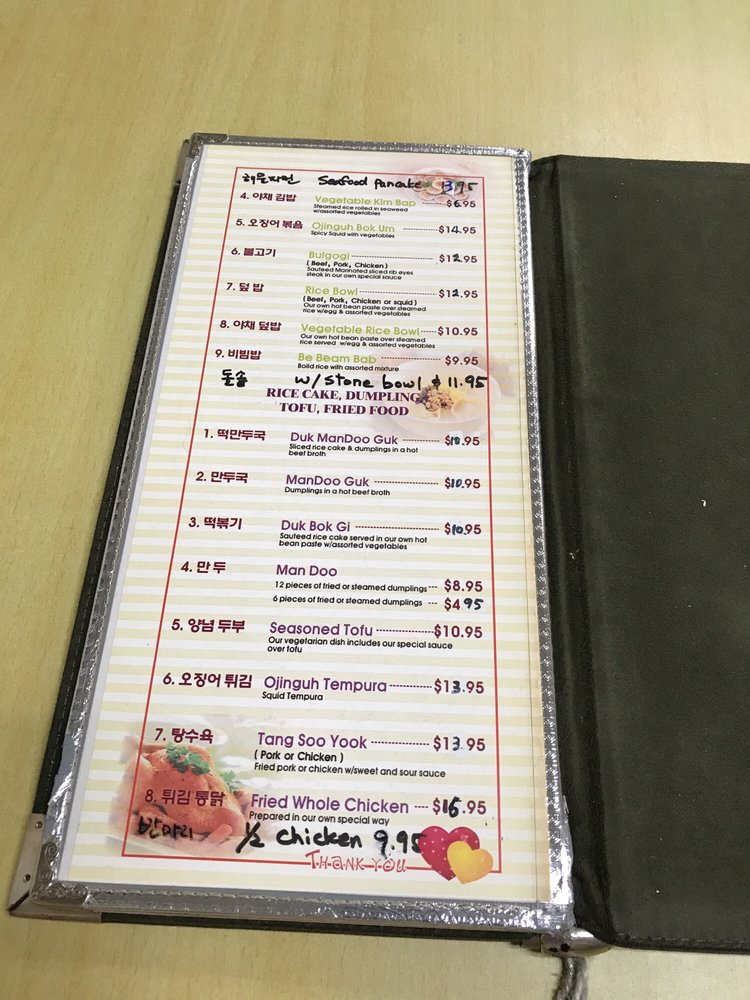 해물파전 Seafood Pancake 13.95
4. 야채 김밥 Vegetable Kim Bap $6.95
Steamed rice rolled in seaweed
w/assorted vegetables
5. 오징어 볶음 Ojinguh Bok Um $14.95
Spicy Squid with vegetables
6. 불고기 Bulgogi $12.95
( Beef, Pork, Chicken )
Sauteed Marinated sliced rib eyes
steak in our own special sauce
7. 덮 밥 Rice Bowl $12.95
(Beef, Pork, Chicken or squid)
Our own hot bean paste over steamed
rice w/egg & assorted vegetables
8. 야채 덮밥 Vegetable Rice Bowl $10.95
Our own hot bean paste over steamed
rice served w/egg & assorted vegetables
9. 비빔밥 Be Beam Bab $9.95
Boild rice with assorted mixture
돌솥 w/stone bowl $11.95
RICE CAKE, DUMPLING
TOFU, FRIED FOOD
1. 떡만두국 Duk ManDoo Guk $10.95
Sliced rice cake & dumplings in a hot
beef broth
2. 만두국 ManDoo Guk $10.95
Dumplings in a hot beef broth
3. 떡볶기 Duk Bok Gi $10.95
Sauteed rice cake served in our own hot
bean paste w/assorted vegetables
4. 만 두 Man Doo
12 pieces of fried or steamed dumplings $8.95
6 pieces of fried or steamed dumplings $4.95
5. 양념 두부 Seasoned Tofu $10.95
Our vegetarian dish includes our special sauce
over tofu
6. 오징어 튀김 Ojinguh Tempura $13.95
Squid Tempura
7. 탕수육 Tang Soo Yook $13.95
( Pork or Chicken )
Fried pork or chicken w/sweet and sour sauce
8. 튀김 통닭 Fried Whole Chicken $16.95
Prepared in our own special way
반마리 1/2 chicken 9.95
THANK YOU